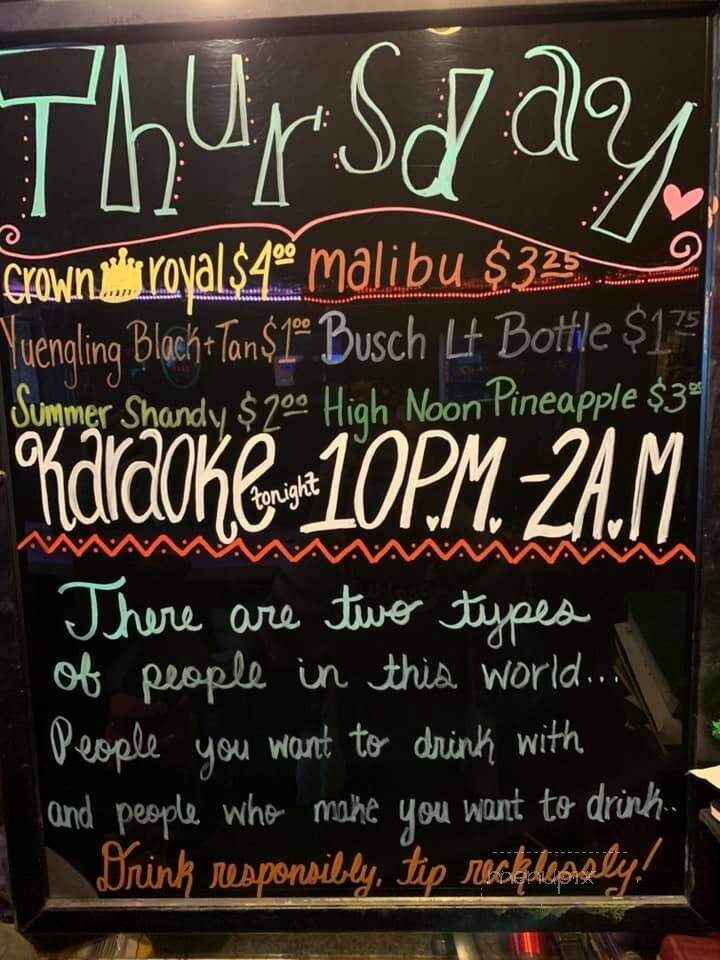 Thursday
Crown royal $4⁰⁰ malibu $3²⁵
Yuengling Black + Tan $1⁰⁰ Busch Lt Bottle $1⁷⁵
Summer Shandy $2⁰⁰ High Noon Pineapple $3⁰⁰
Karaoke tonight 10P.M. - 2A.M
There are two types
of people in this world...
People you want to drink with
and people who make you want to drink..
Drink responsibly, tip recklessly!
menupix